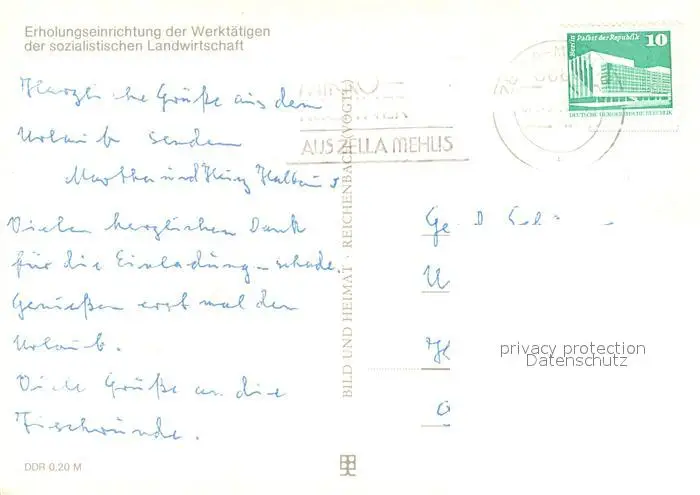 Erholungseinrichtung der Werktätigen
der sozialistischen Landwirtschaft
Berlin Palast der Republik
10
DEUTSCHE DEMOKRATISCHE REPUBLIK
AUS ZELLA MEHLIS
Herzliche Grüße aus dem
Urlaub senden
Martha und
Vielen herzlichen Dank
für die Einladung - schade.
Genießen erst mal den
Urlaub.
Viele Grüße an die
BILD UND HEIMAT · REICHENBACH (VOGTL)
privacy protection
Datenschutz
DDR 0,20 M